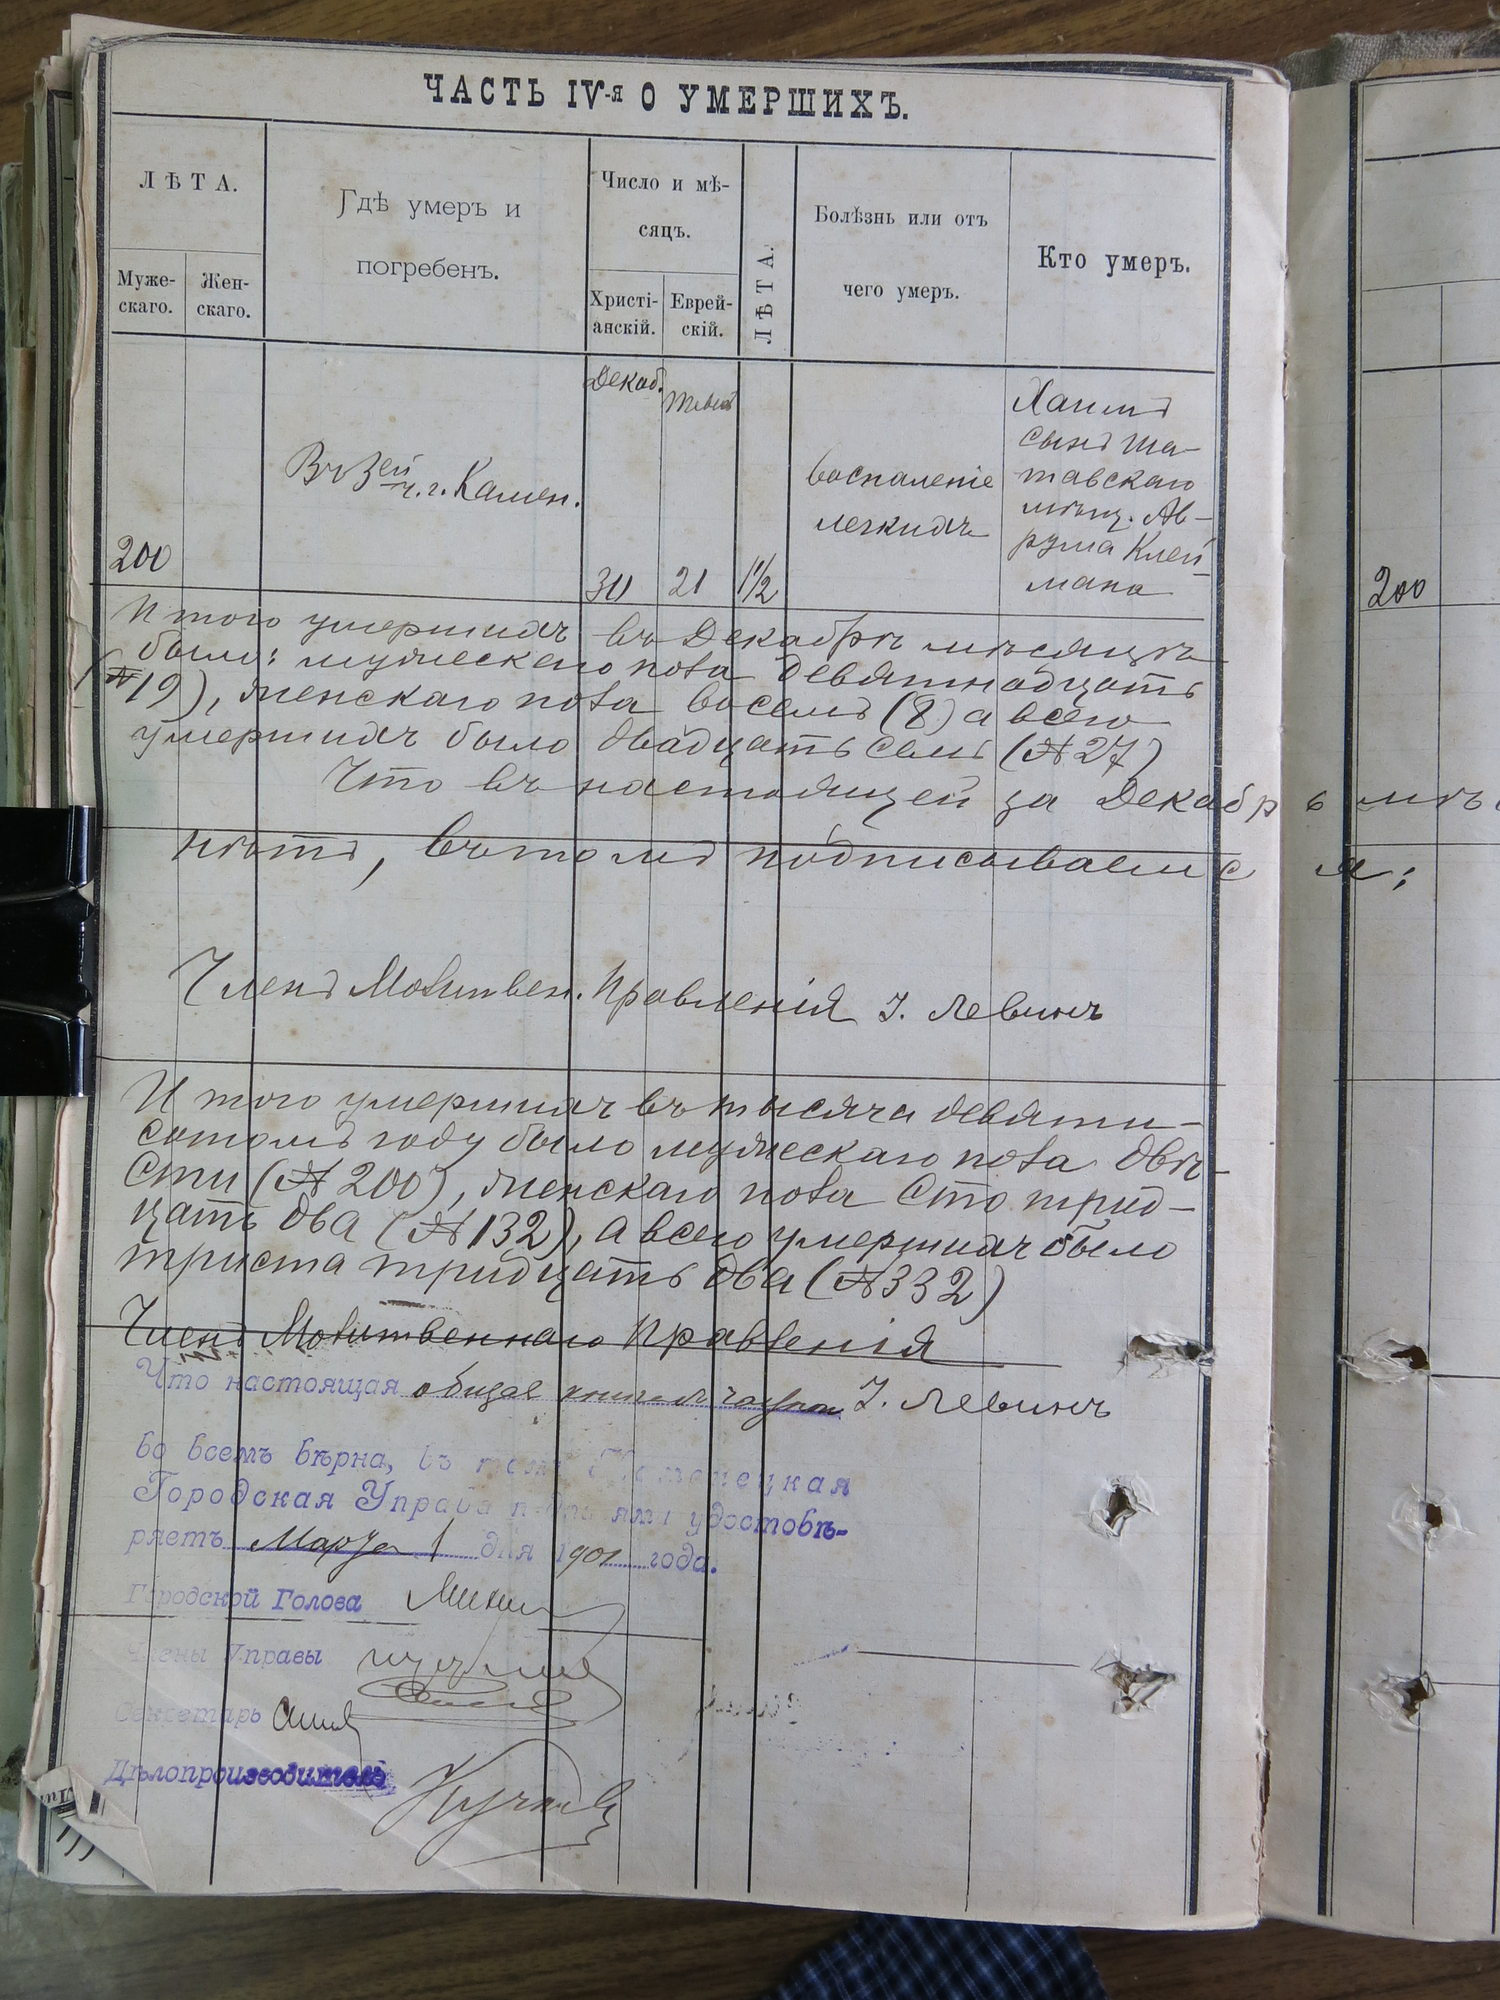 ЧАСТЬ IV-я О УМЕРШИХЪ.
ЛѢТА.
Муже-
скаго.
Жен-
скаго.
Гдѣ умеръ и
погребенъ.
Число и мѣ-
сяцъ.
Христі-
анскій.
Еврей-
скій.
ЛѢТА.
Болѣзнь или отъ
чего умеръ.
Кто умеръ.
200
Въ 3ей ч. г. Камен.
Декаб.
30
Тевеѳ
21
1 1/2
воспаленіе
легкихъ
Хаимъ
сынъ Ша-
тавскаго
мѣщ. Ав-
рума Клей-
мана
200
Итого умершихъ въ Декабрѣ мѣсяцѣ
было: мужескаго пола девятнадцать
(№ 19), женскаго пола восемь (8) а всего
умершихъ было двадцать семь (№ 27)
Что въ настоящей за Декабрь мѣс
нѣтъ, въ томъ подписываемся:
Членъ Молитвен. Правленія І. Левинъ
Итого умершихъ въ тысяча девяти-
сотомъ году было мужескаго пола двѣ-
сти (№ 200), женскаго пола сто трид-
цать два (№ 132), а всего умершихъ было
триста тридцать два (№ 332)
Членъ Молитвеннаго Правленія
Что настоящая общая книга І. Левинъ
во всемъ вѣрна, въ томъ Каменецкая
Городская Управа подписями удостовѣ-
ряетъ Марта 1 дня 1901 года.
Городской Голова
Члены Управы
Секретарь
Дѣлопроизводитель